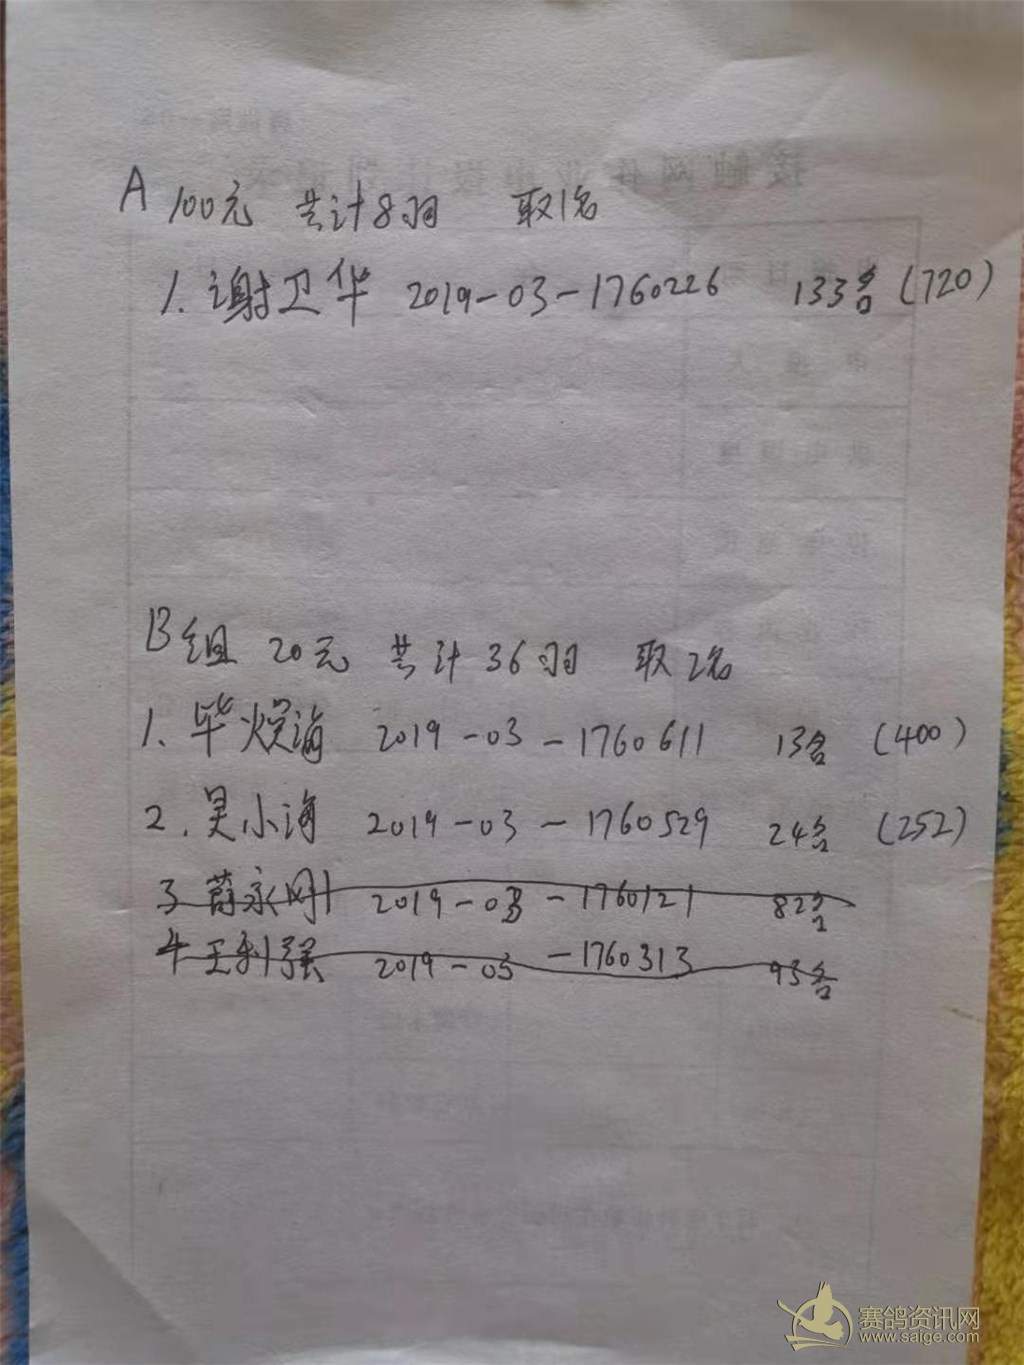 A 100元 共计8羽 取1名
1.谢卫华 2019-03-1760226 133名(720)
B组 20元 共计36羽 取2名
1、毕焕海 2019-03-1760611 13名 (400)
2.吴小海 2019-03-1760529 24名 (252)
3 薛永刚 2019-03-1760121 82名
4 王利强 2019-03-1760313 93名
赛鸽资讯网
www.saige.com